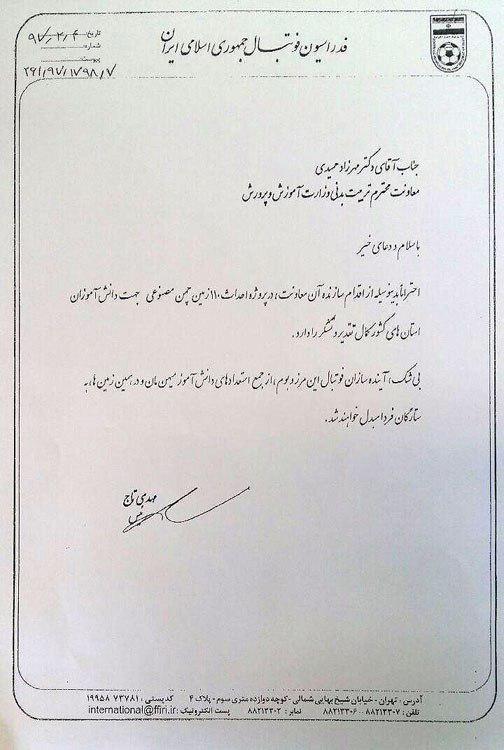 فدراسیون فوتبال جمهوری اسلامی ایران
تاریخ: ۹۷٫۲٫۴
شماره:
پیوست:
۲۶۱٫۹۷٫۱۷۹۸٫۷
جناب آقای دکتر مهرزاد حمیدی
معاونت محترم تربیت بدنی وزارت آموزش و پرورش
با سلام و دعای خیر
احتراماً بدینوسیله از اقدام سازنده آن معاونت، در پروژه احداث ۱۱۰ زمین چمن مصنوعی جهت دانش آموزان
استان های کشور کمال تقدیر و تشکر را دارد.
بی شک، آینده سازان فوتبال این مرز و بوم، از جمع استعدادهای دانش آموز میهن مان و در همین زمین ها، به
ستارگان فردا مبدل خواهند شد.
مهدی تاج
رئیس
آدرس - تهران - خیابان شیخ بهایی شمالی - کوچه دوازده متری سوم - پلاک ۴ کدپستی: ۷۳۷۸۱ ۱۹۹۵۸
تلفن: ۸۸۲۱۳۳۰۷ - ۸۸۲۱۳۳۰۶ نمابر: ۸۸۲۱۳۳۰۲ پست الکترونیک: international@ffiri.ir